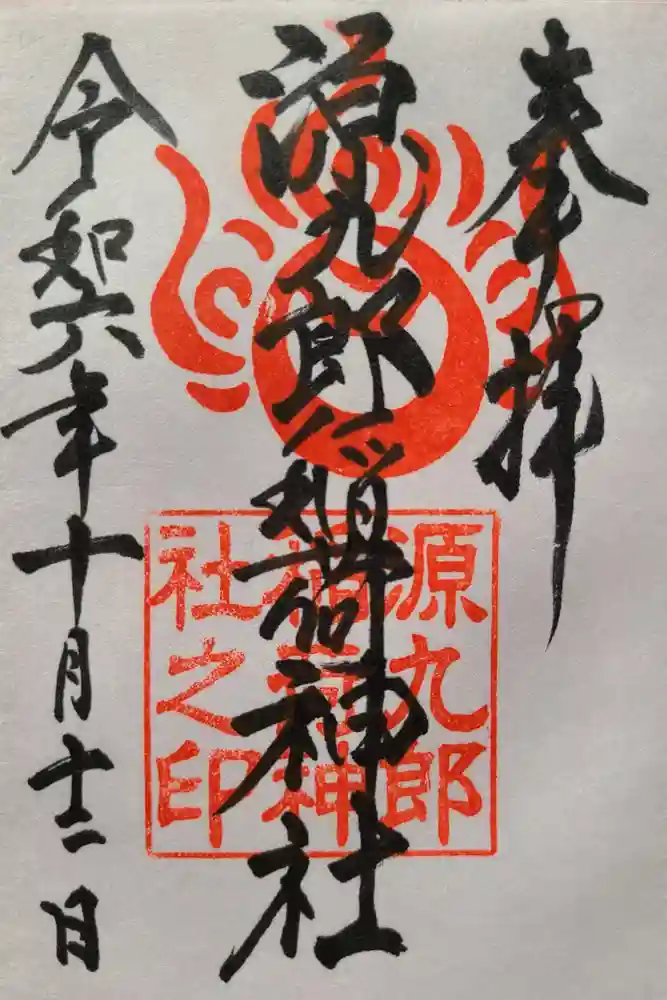 奉拝
源九郎稲荷神社
源九郎
稲荷神
社之印
令和六年十月十二日